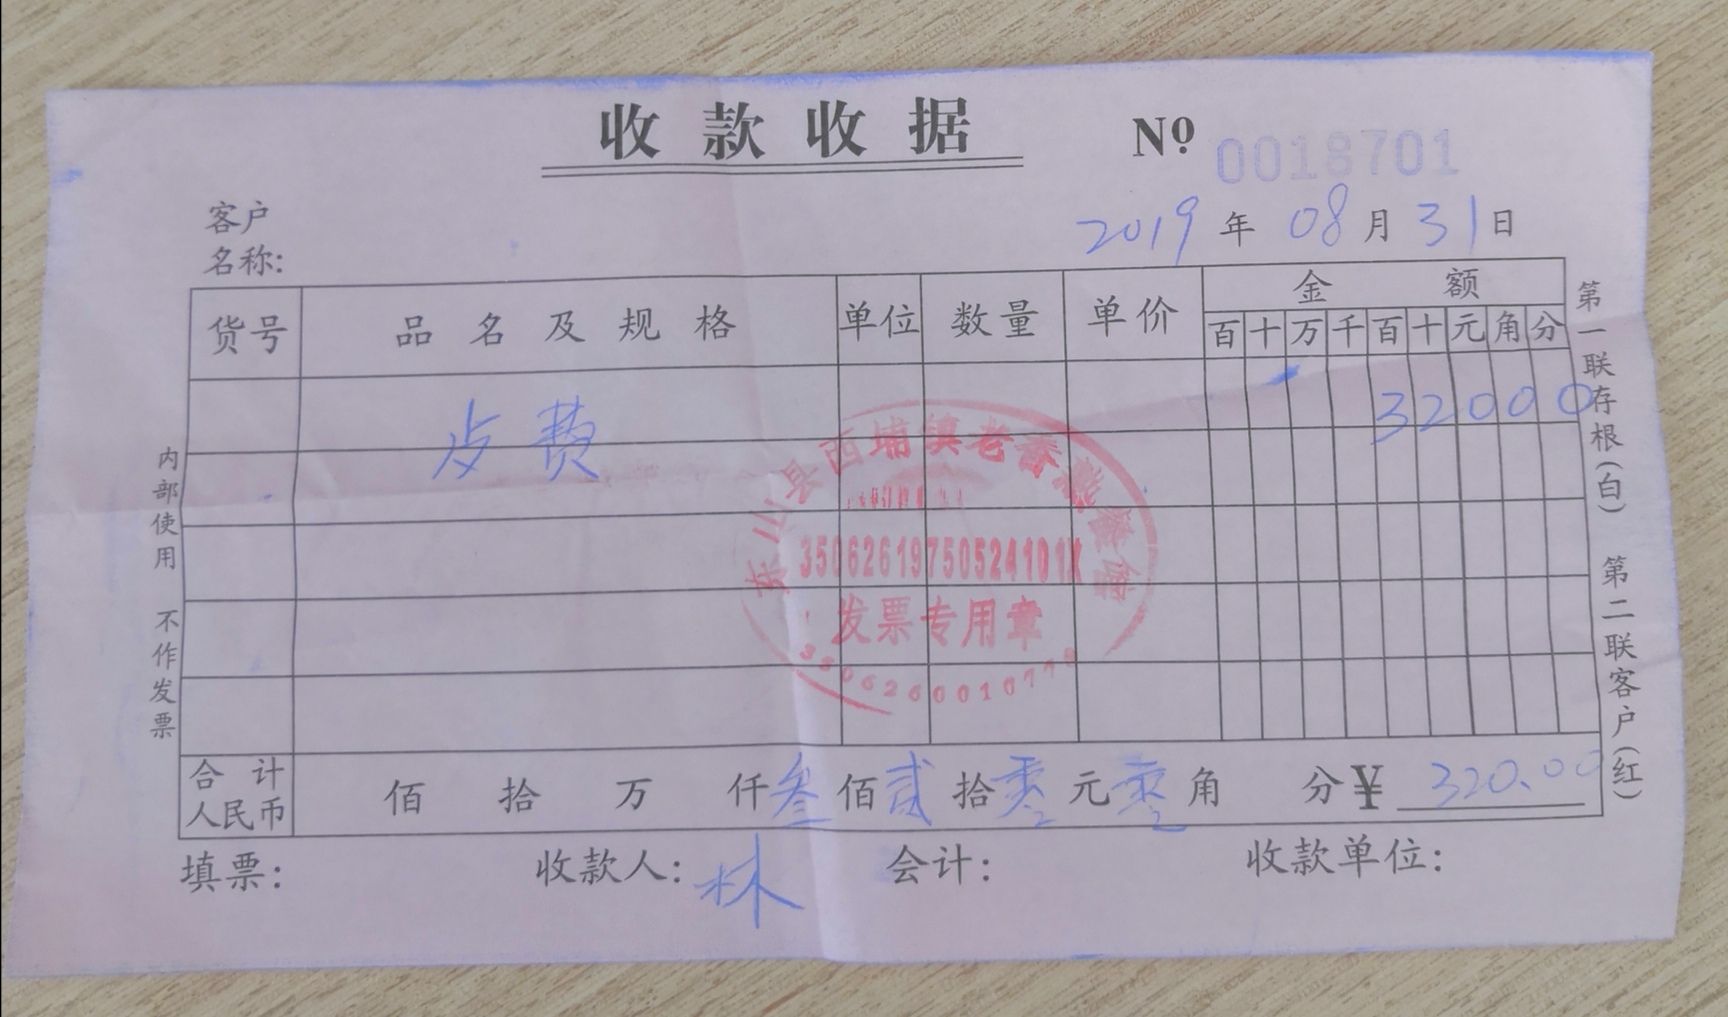 收款收据
Nº 0018701
客户
名称:
2019年08月31日
货号 品名及规格 单位 数量 单价 金额
百十万千百十元角分
费 32000
东山县西埔镇老春
35062619750524101X
发票专用章
合计
人民币
佰 拾 万 仟叁佰贰拾零元零角 分¥ 320.00
填票: 收款人: 林 会计: 收款单位:
内部使用 不作发票
第一联存根(白) 第二联客户(红)